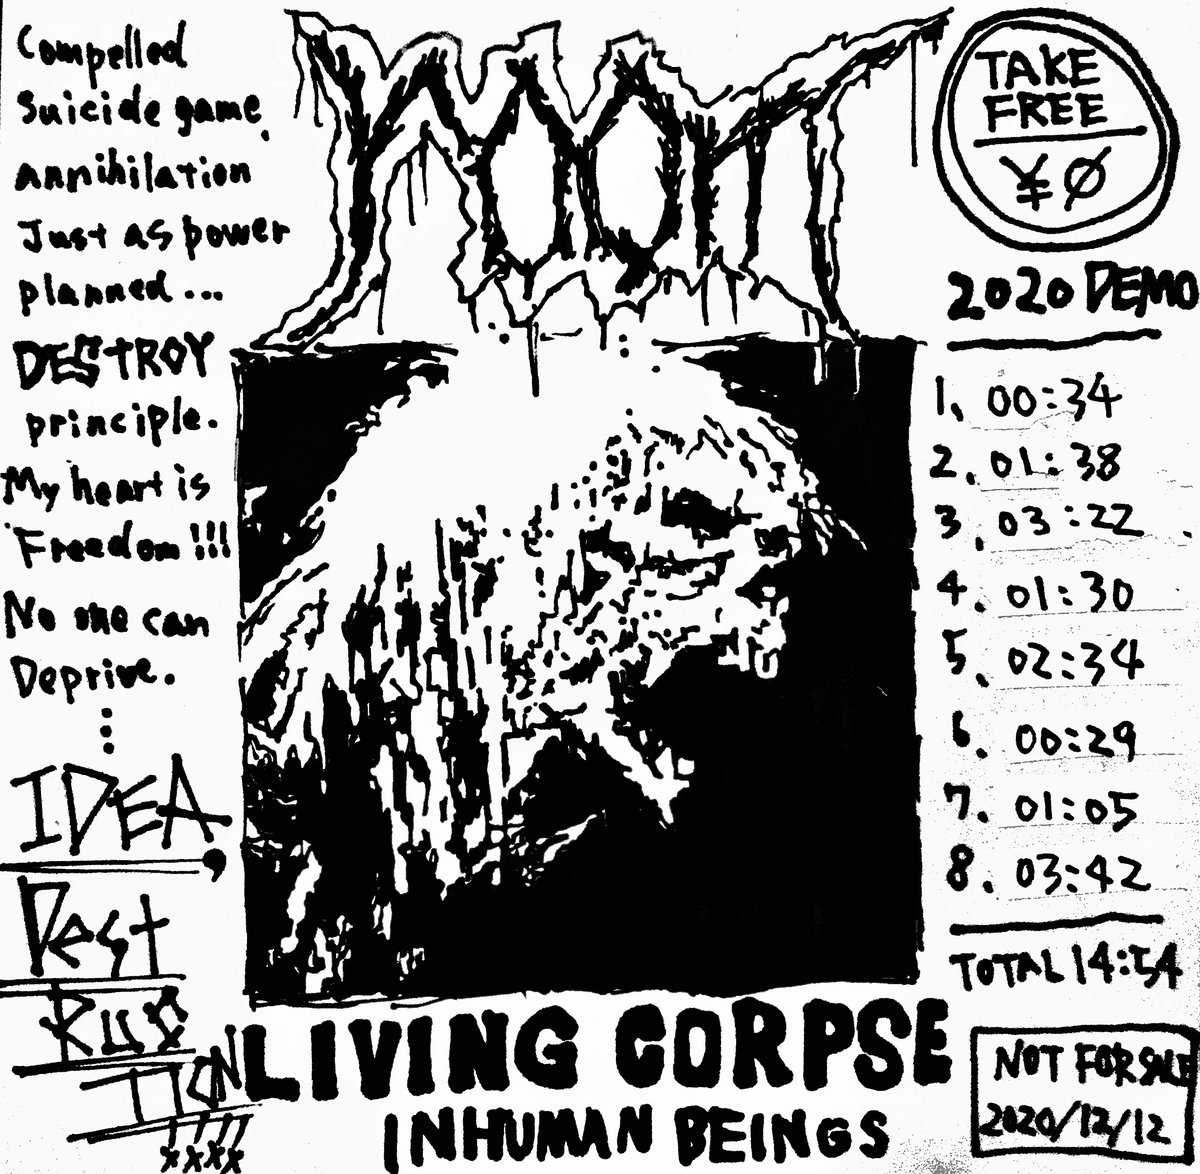 Compelled
Suicide game,
annihilation
Just as power
planned...
DESTROY
principle.
My heart is
Freedom!!!
No one can
Deprive.
IDEA,
Dest
Ruc
TION
xxxx
TAKE
FREE
¥0
2020 DEMO
1. 00:34
2. 01:38
3. 03:22
4. 01:30
5. 02:34
6. 00:29
7. 01:05
8. 03:42
TOTAL 14:54
NOT FOR SALE
2020/12/12
LIVING CORPSE
INHUMAN BEINGS